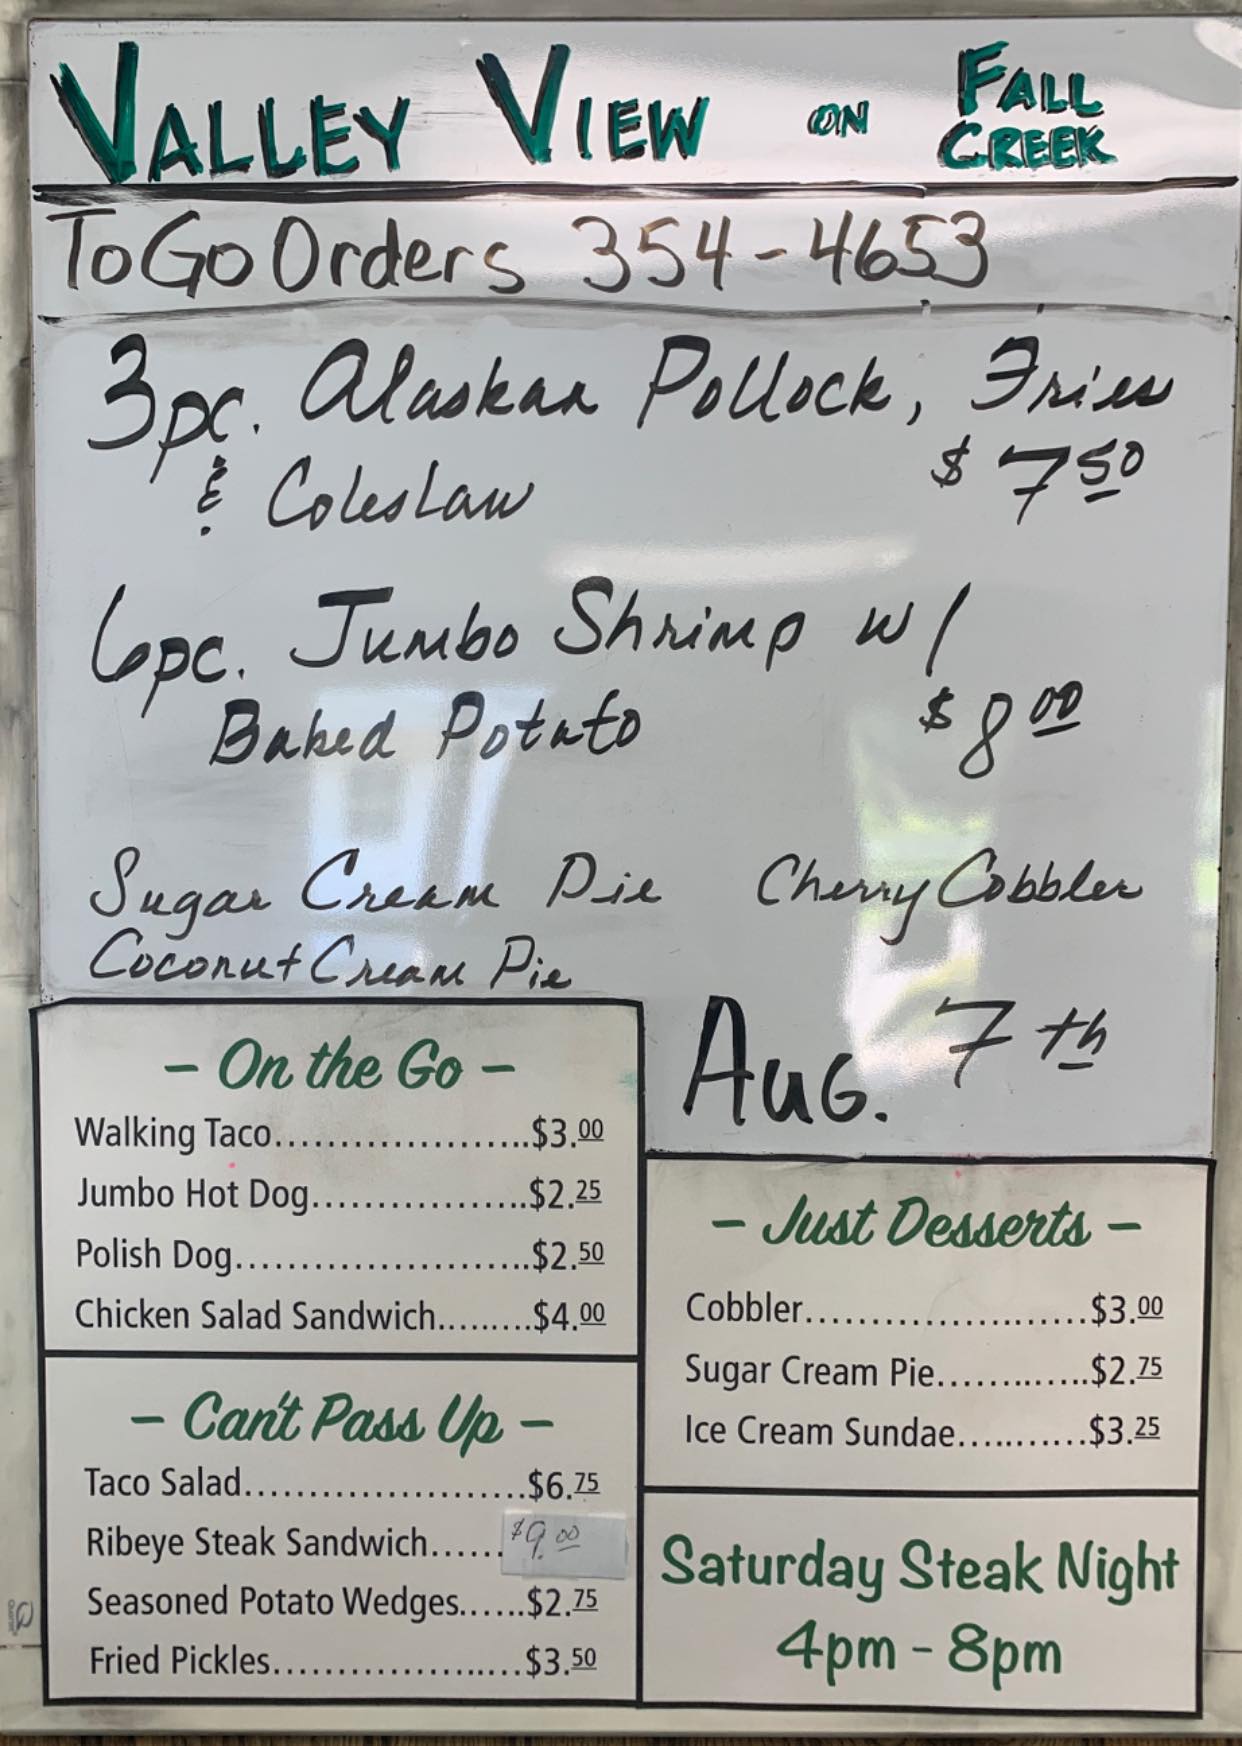 VALLEY VIEW ON FALL CREEK
To Go Orders 354-4653
3pc. Alaskan Pollock, Fries
& Coleslaw $7.50
6pc. Jumbo Shrimp w/
Baked Potato $8.00
Sugar Cream Pie Cherry Cobbler
Coconut Cream Pie
Aug. 7th
- On the Go -
Walking Taco....................$3.00
Jumbo Hot Dog.................$2.25
Polish Dog.......................$2.50
Chicken Salad Sandwich.........$4.00
- Can't Pass Up -
Taco Salad......................$6.75
Ribeye Steak Sandwich...... $9.00
Seasoned Potato Wedges......$2.75
Fried Pickles....................$3.50
- Just Desserts -
Cobbler......................$3.00
Sugar Cream Pie............$2.75
Ice Cream Sundae...........$3.25
Saturday Steak Night
4pm - 8pm